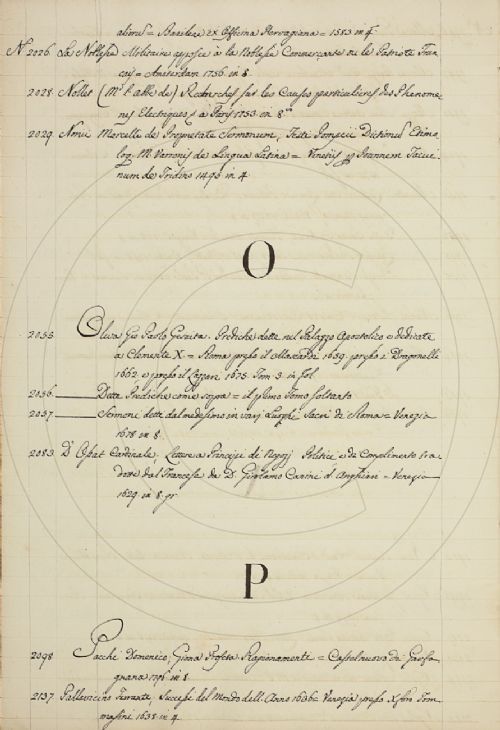 alione = Basileæ ex Officina Hervagiana = 1583 in 4.
N. 2026. La Noblesse Militaire opposée à la Noblesse Commerçante ou le Patriote Fran-
çois = Amsterdam 1756 in 8.
2028. Nollet (Mr. l'abbé de) Recherches sur les Causes particulieres des Phenome-
nes Electriques = à Paris 1753. in 8.
2029. Nonii Marcelli de Proprietate Sermonum, Festi Pompeii Dictionum Etimo-
log. M. Varronis de Lingua Latina = Venetiis per Joannem Tacui-
num de Tridino 1496 in 4
O
2055. Oliva Gio Paolo Gesuita. Prediche dette nel Palazzo Apostolico e dedicate
a Clemente X. = Roma presso il Mascardi 1659. presso i Dragonelli
1662. e presso il Lazzari 1675. Tom. 3. in fol.
2056. Dette Prediche come sopra = il primo Tomo soltanto
2057. Sermoni dette dal medesimo in varj Luoghi Sacri di Roma = Venezia
1678 in 8.
2083. D'Ossat Cardinale. Lettere a Principi di Negozj Politici e di Complimento tra-
dotte dal Francese da D. Girolamo Canini d'Anghiari = Venezia
1629. in 8. gr.
P
2098. Pacchi Domenico, Giona Profeta Ragionamenti = Castelnuovo di Garfa-
gnana 1796 in 8
2137. Pallavicino Ferrante, Successi del Mondo dell'Anno 1636 = Venezia presso Xforo Tom-
masini 1638 in 4.